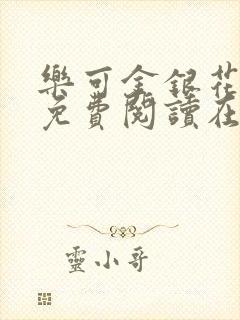 樂可金銀花
免費閱讀在
靈小哥